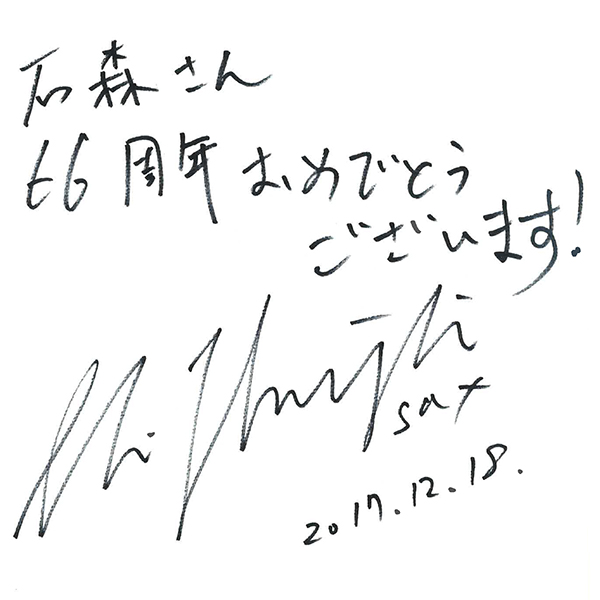 石森さん
66周年おめでとう
ございます!
sax
2017.12.18.